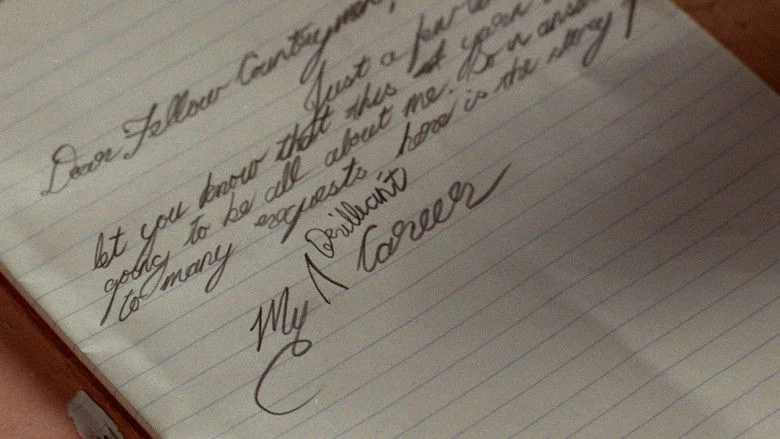 Dear Fellow Countrymen,
Just a few
let you know that this yarn
going to be all about me. So in
to many requests, here is the story
Brilliant
My Career